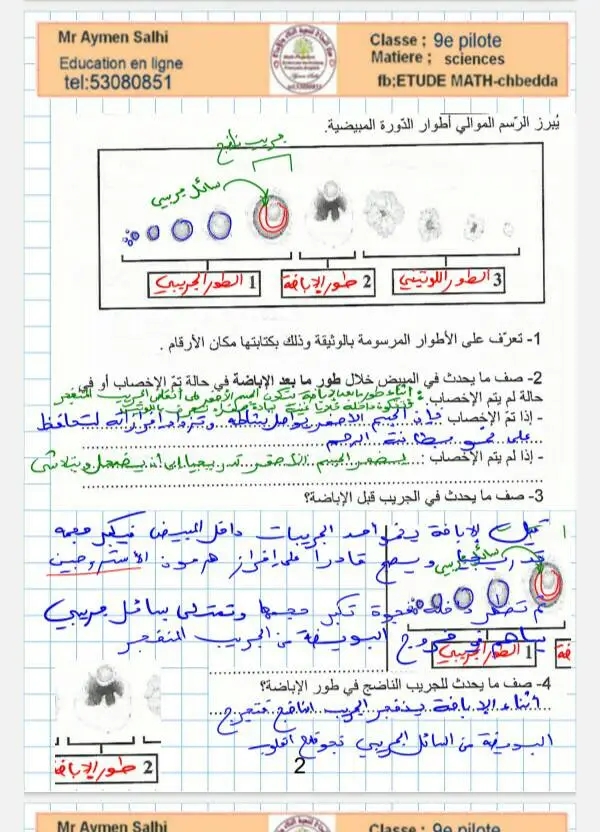 Mr Aymen Salhi
Education en ligne
tel:53080851
Classe ; 9e pilote
Matiere ; sciences
fb;ETUDE MATH-chbedda
يُبرز الرّسم الموالي أطوار الدّورة المبيضية.
جريب ناضج
سائل جريبي
1 الطور الجريبي
2 طور الإباضة
3 الطور اللوتيني
1- تعرّف على الأطوار المرسومة بالوثيقة وذلك بكتابتها مكان الأرقام .
2- صف ما يحدث في المبيض خلال طور ما بعد الإباضة في حالة تمّ الإخصاب أو في
حالة لم يتم الإخصاب :
- إذا تمّ الإخصاب : فإن الجسم الأصفر يواصل نشاطه
على نمو بطانة الرحم
- إذا لم يتم الإخصاب : يضمر الجسم الأصفر تدريجيا إلى أن يضمحل ويتلاشى
3- صف ما يحدث في الجريب قبل الإباضة؟
قبل الإباضة ينمو أحد الجريبات داخل المبيض فيكبر حجمه
تدريجيا ويصبح قادرا على إفراز هرمون الأستروجين
سائل جريبي
ثم تظهر داخله فجوة تكبر حجمها وتمتلئ بسائل جريبي
يساهم في خروج البويضة من الجريب المنفجر
1 الطور الجريبي
4- صف ما يحدث للجريب الناضج في طور الإباضة؟
أثناء الإباضة ينفجر الجريب الناضج فتخرج
البويضة من السائل الجريبي نحو
2 طور الإباضة
2
Mr Aymen Salhi
Classe ; 9e pilote